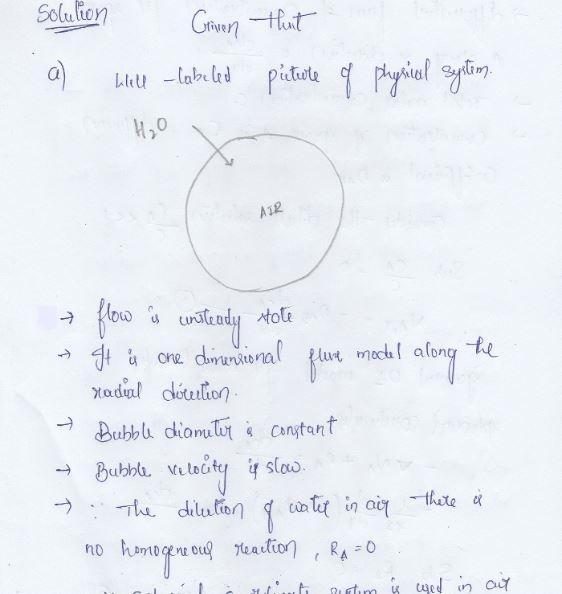 Solution Given that
a) Well-labeled picture of physical system.
H₂O
AIR
→ flow is unsteady state
→ It is one dimensional flux model along the
radial direction.
→ Bubble diameter is constant
→ Bubble velocity is slow.
→ ∵ The dilution of water in air there is
no homogeneous reaction, R_A = 0
system is used in air